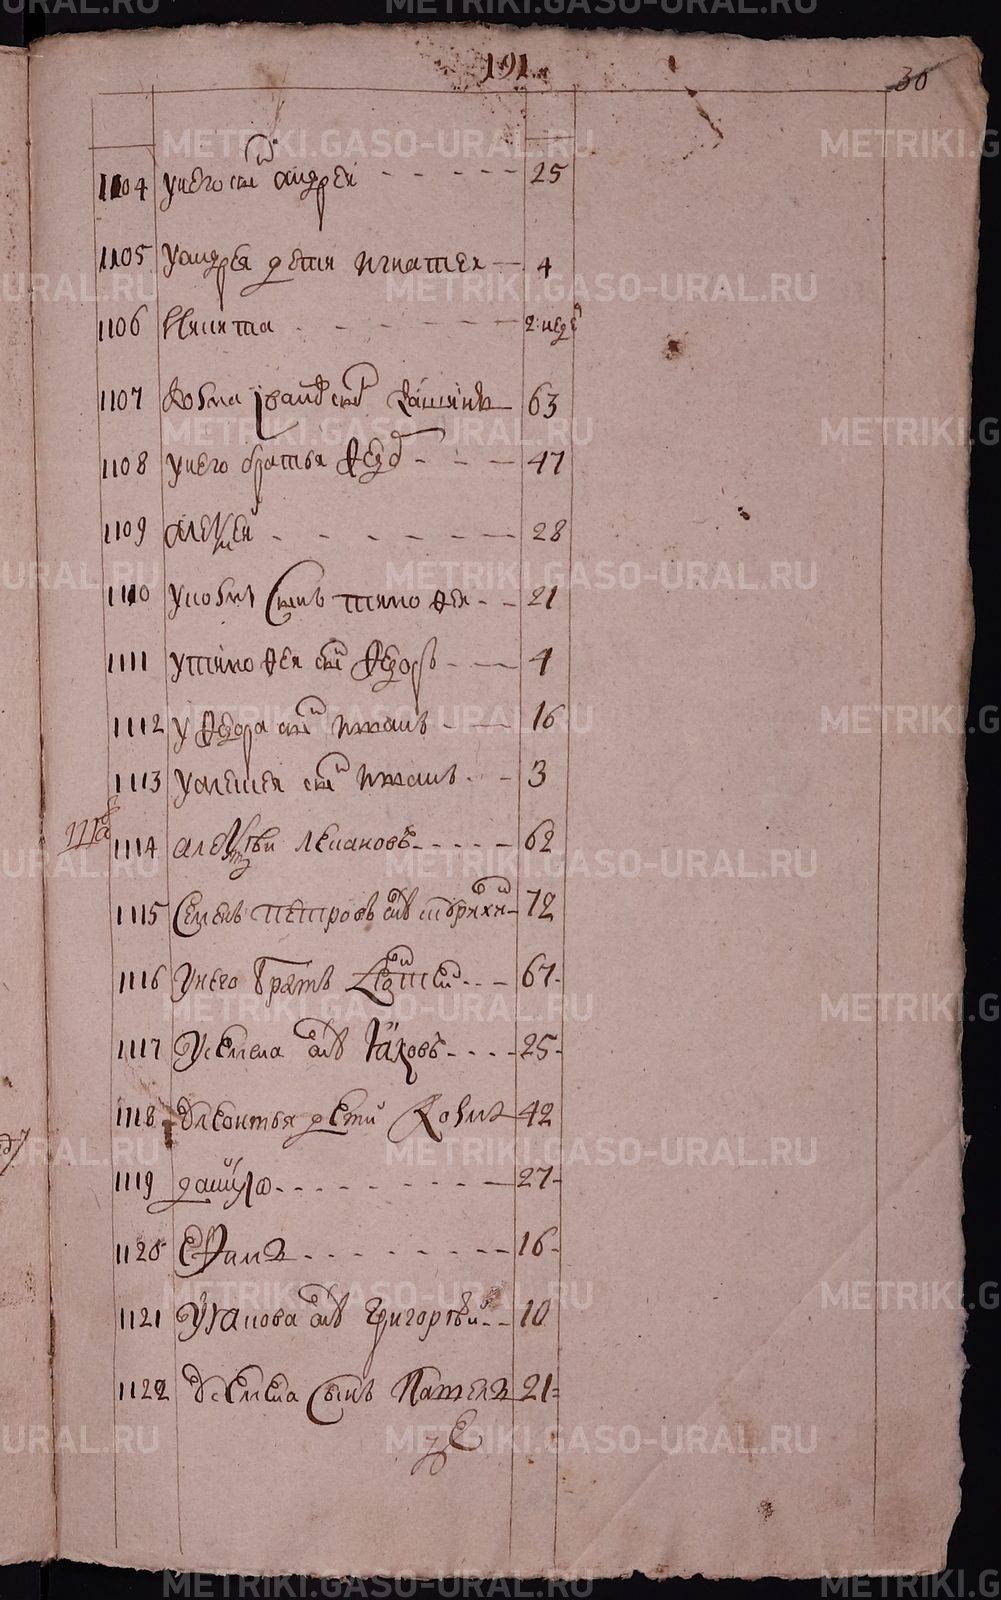 191
30
1104 У него сын андреи - - - - - 25
1105 У андрея дети игнатеи - 4
1106 Никита - - - - - - 2 недеⷧ
1107 Козма Iвановъ сынъ 63
1108 У него братья Ѳедоръ - - - 47
1109 Алексеи - - - - - - 28
1110 У козмы Сынъ тимоѳеи - - 21
1111 У тимоѳея сынъ Ѳедоръ - - 4
1112 У Ѳедора сынъ иванъ - - 16
1113 У алексея сынъ иванъ - - 3
1114 алексѣи - - - - - 62
1115 Семенъ петровъ сынъ - 72
1116 У него братъ - - - 67
1117 У семена сынъ Iаковъ - - - - 25
1118 У леонтья дети Козма 42
1119 данило - - - - - - - - 27
1120 Еѳимъ - - - - - - - - 16
1121 У якова сынъ Григореи - - 10
1122 У семена Сынъ 21
METRIKI.GASO-URAL.RU